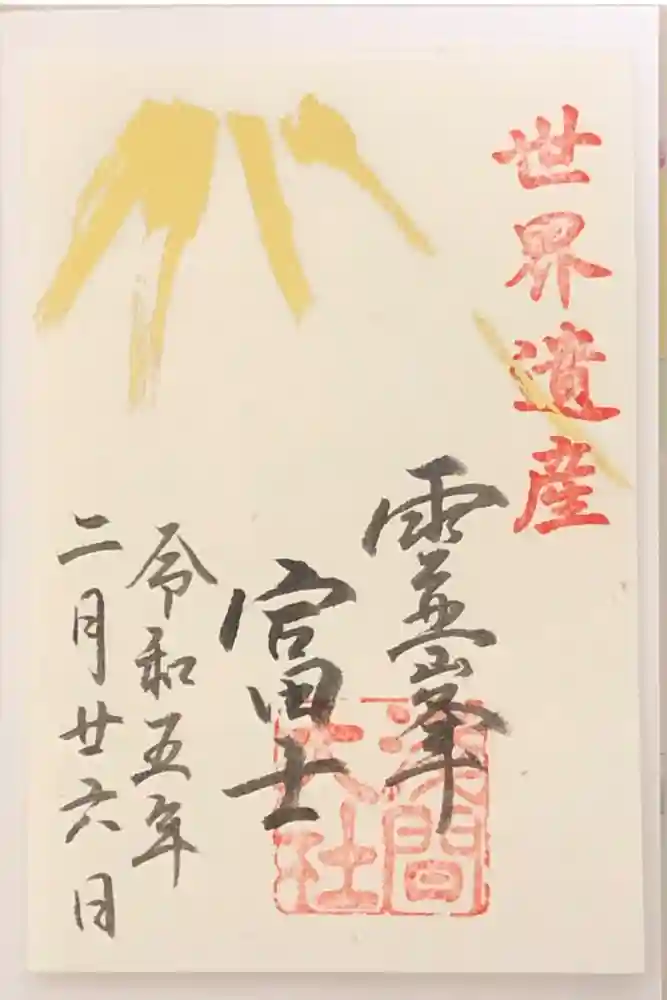 世界遺産
靈峯
富士
令和五年
二月廿六日
浅間
大社